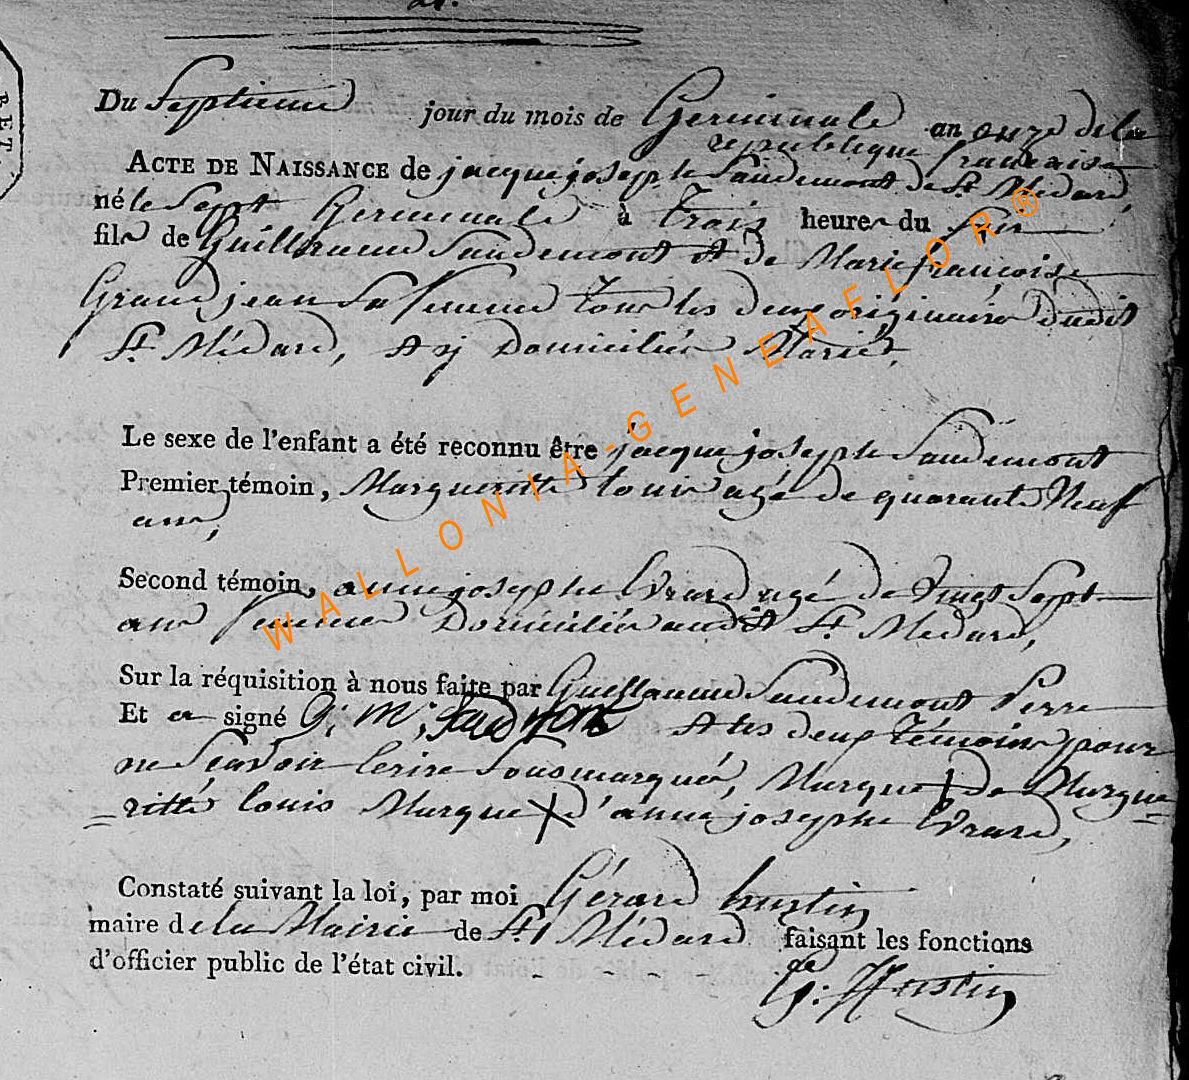 Du Septieme jour du mois de Germinale an onze de la
republique francaise
ACTE DE NAISSANCE de jacque josephe Saudemont de St. Médard,
né le Sept Germinale à trois heures du Soir
fils de Guillaume Saudemont et de Marie françoise
Grandjean Sa femme tous les deux originaire dudit
St. Médard, et y Domiciliés Mariés,
Le sexe de l'enfant a été reconnu être jacque josephe Saudemont
Premier témoin, Margueritte louis agé de quarante Neuf
ans,
Second témoin, anne josephe Evrard agé de Vingt Sept
ans femme Domiciliés audit St. Médard,
Sur la réquisition à nous faite par Guillaume Saudemont Perre
Et a signé G: m: Saudmont et les deux témoins pour
ne Scavoir Ecrire Sousmarqué, Marque + de Margue
=ritte louis Marque + d'anne josephe Evrard,
Constaté suivant la loi, par moi Gérard hustin
maire de la Mairie de St. Médard faisant les fonctions
d'officier public de l'état civil. - - - -
G: Hustin
WALLONIA-GENEAFLOR®